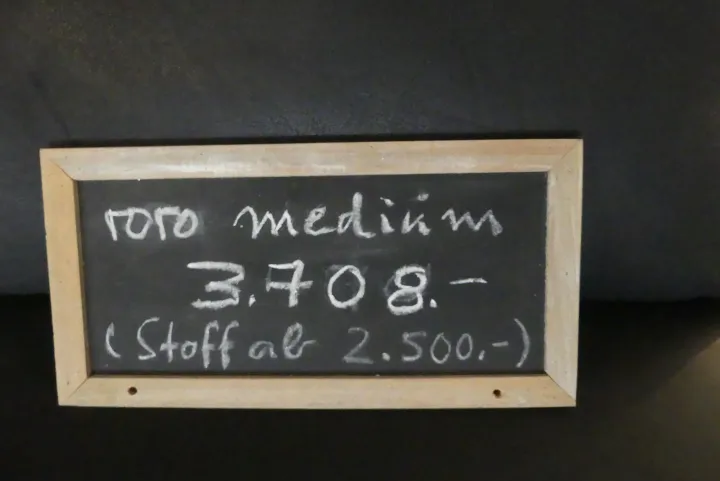 roro medium
3.708.-
(Stoff ab 2.500.-)